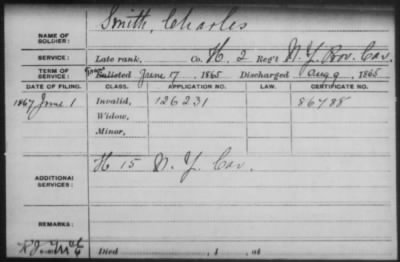 NAME OF SOLDIER: Smith, Charles
SERVICE: Late rank, Co. H, 2 Reg't N. Y. Prov. Cav.
TERM OF SERVICE: Enlisted June 17, 1865 Discharged Aug 9, 1865
DATE OF FILING. CLASS. APPLICATION NO. LAW. CERTIFICATE NO.
1867 June 1 Invalid, 126231 86788
Widow,
Minor,
ADDITIONAL SERVICES: H 15 N. Y. Cav.
REMARKS:
Died , 1 , at